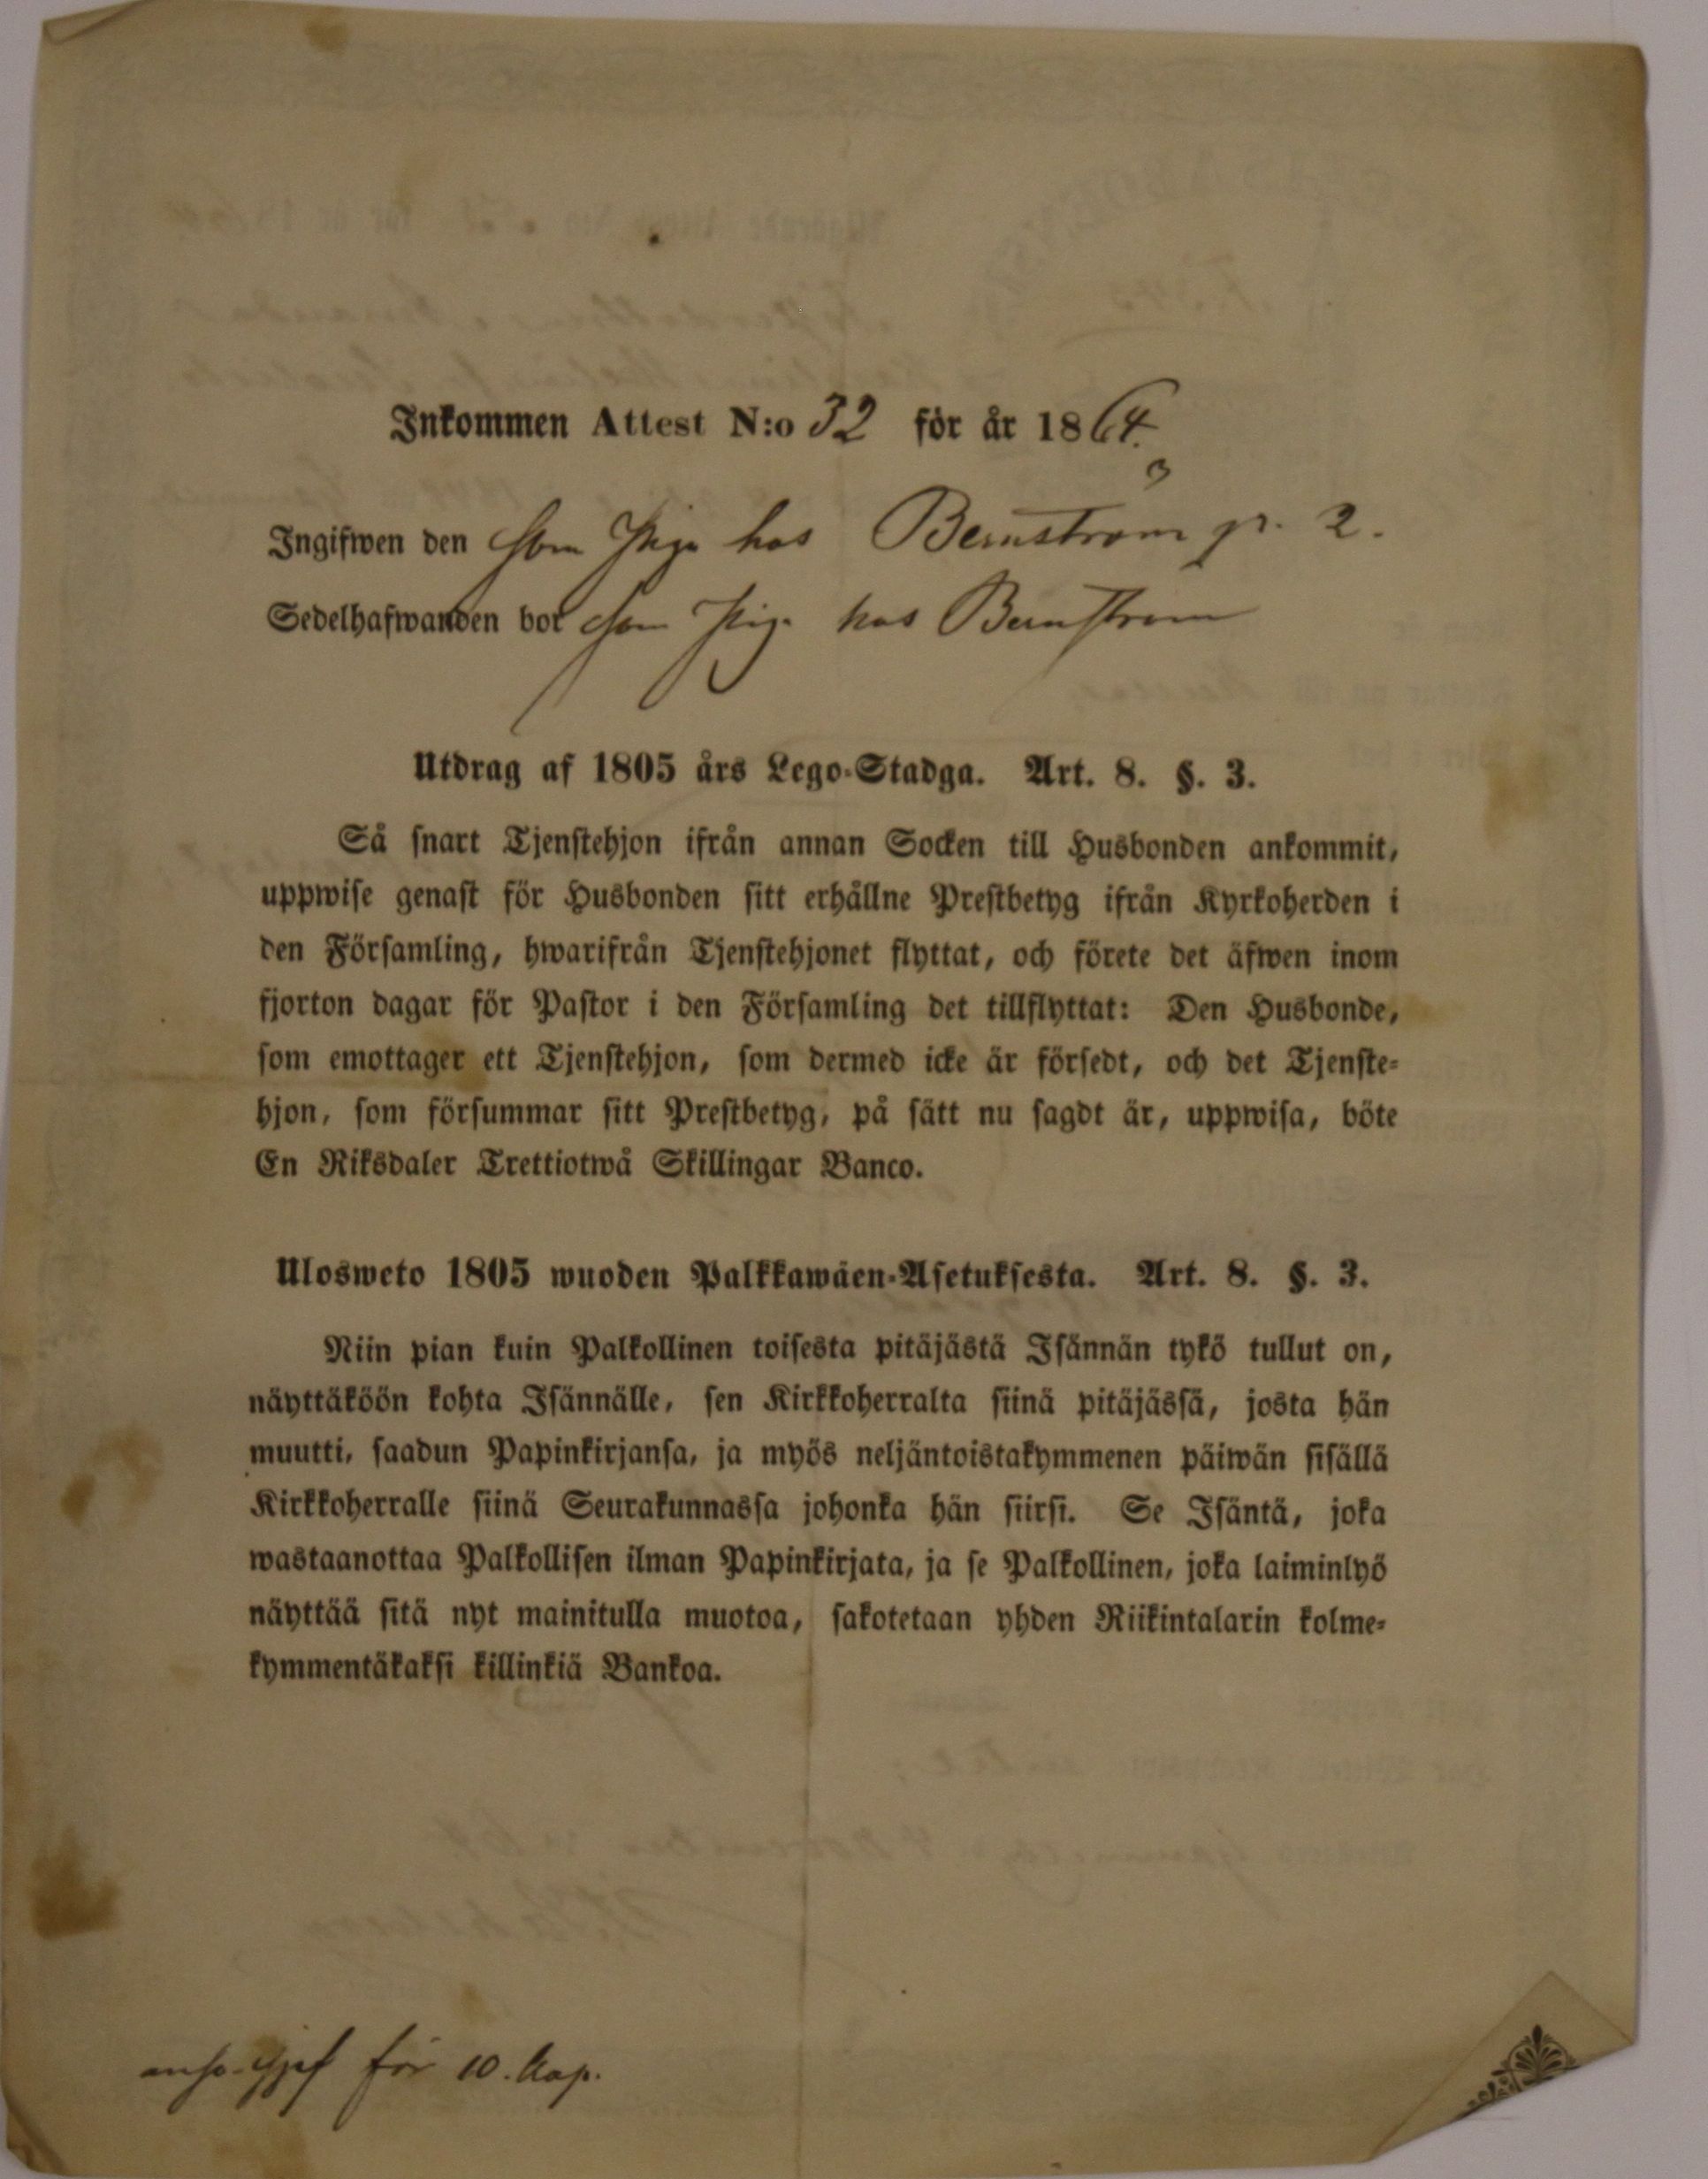 Inkommen Attest N:o 32 för år 1864.
Ingifwen den som Piga has Bernström gr. 2.
Sedelhafwanden bor som Piga has Bernström
Utdrag af 1805 års Lego-Stadga. Art. 8. §. 3.
Så snart Tjenstehjon ifrån annan Socken till Husbonden ankommit,
uppwise genast för Husbonden sitt erhållne Prestbetyg ifrån Kyrkoherden i
den Församling, hwarifrån Tjenstehjonet flyttat, och förete det äfwen inom
fjorton dagar för Pastor i den Församling det tillflyttat: Den Husbonde,
som emottager ett Tjenstehjon, som dermed icke är försedt, och det Tjenste-
hjon, som försummar sitt Prestbetyg, på sätt nu sagdt är, uppwisa, böte
En Riksdaler Trettiotwå Skillingar Banco.
Ulosweto 1805 wuoden Palkkawäen-Asetuksesta. Art. 8. §. 3.
Niin pian kuin Palkollinen toisesta pitäjästä Isännän tykö tullut on,
näyttäköön kohta Isännälle, sen Kirkkoherralta siinä pitäjässä, josta hän
muutti, saadun Papinkirjansa, ja myös neljäntoistakymmenen päiwän sisällä
Kirkkoherralle siinä Seurakunnassa johonka hän siirsi. Se Isäntä, joka
wastaanottaa Palkollisen ilman Papinkirjata, ja se Palkollinen, joka laiminlyö
näyttää sitä nyt mainitulla muotoa, sakotetaan yhden Riikintalarin kolme-
kymmentäkaksi killinkiä Bankoa.
för 10. kop.